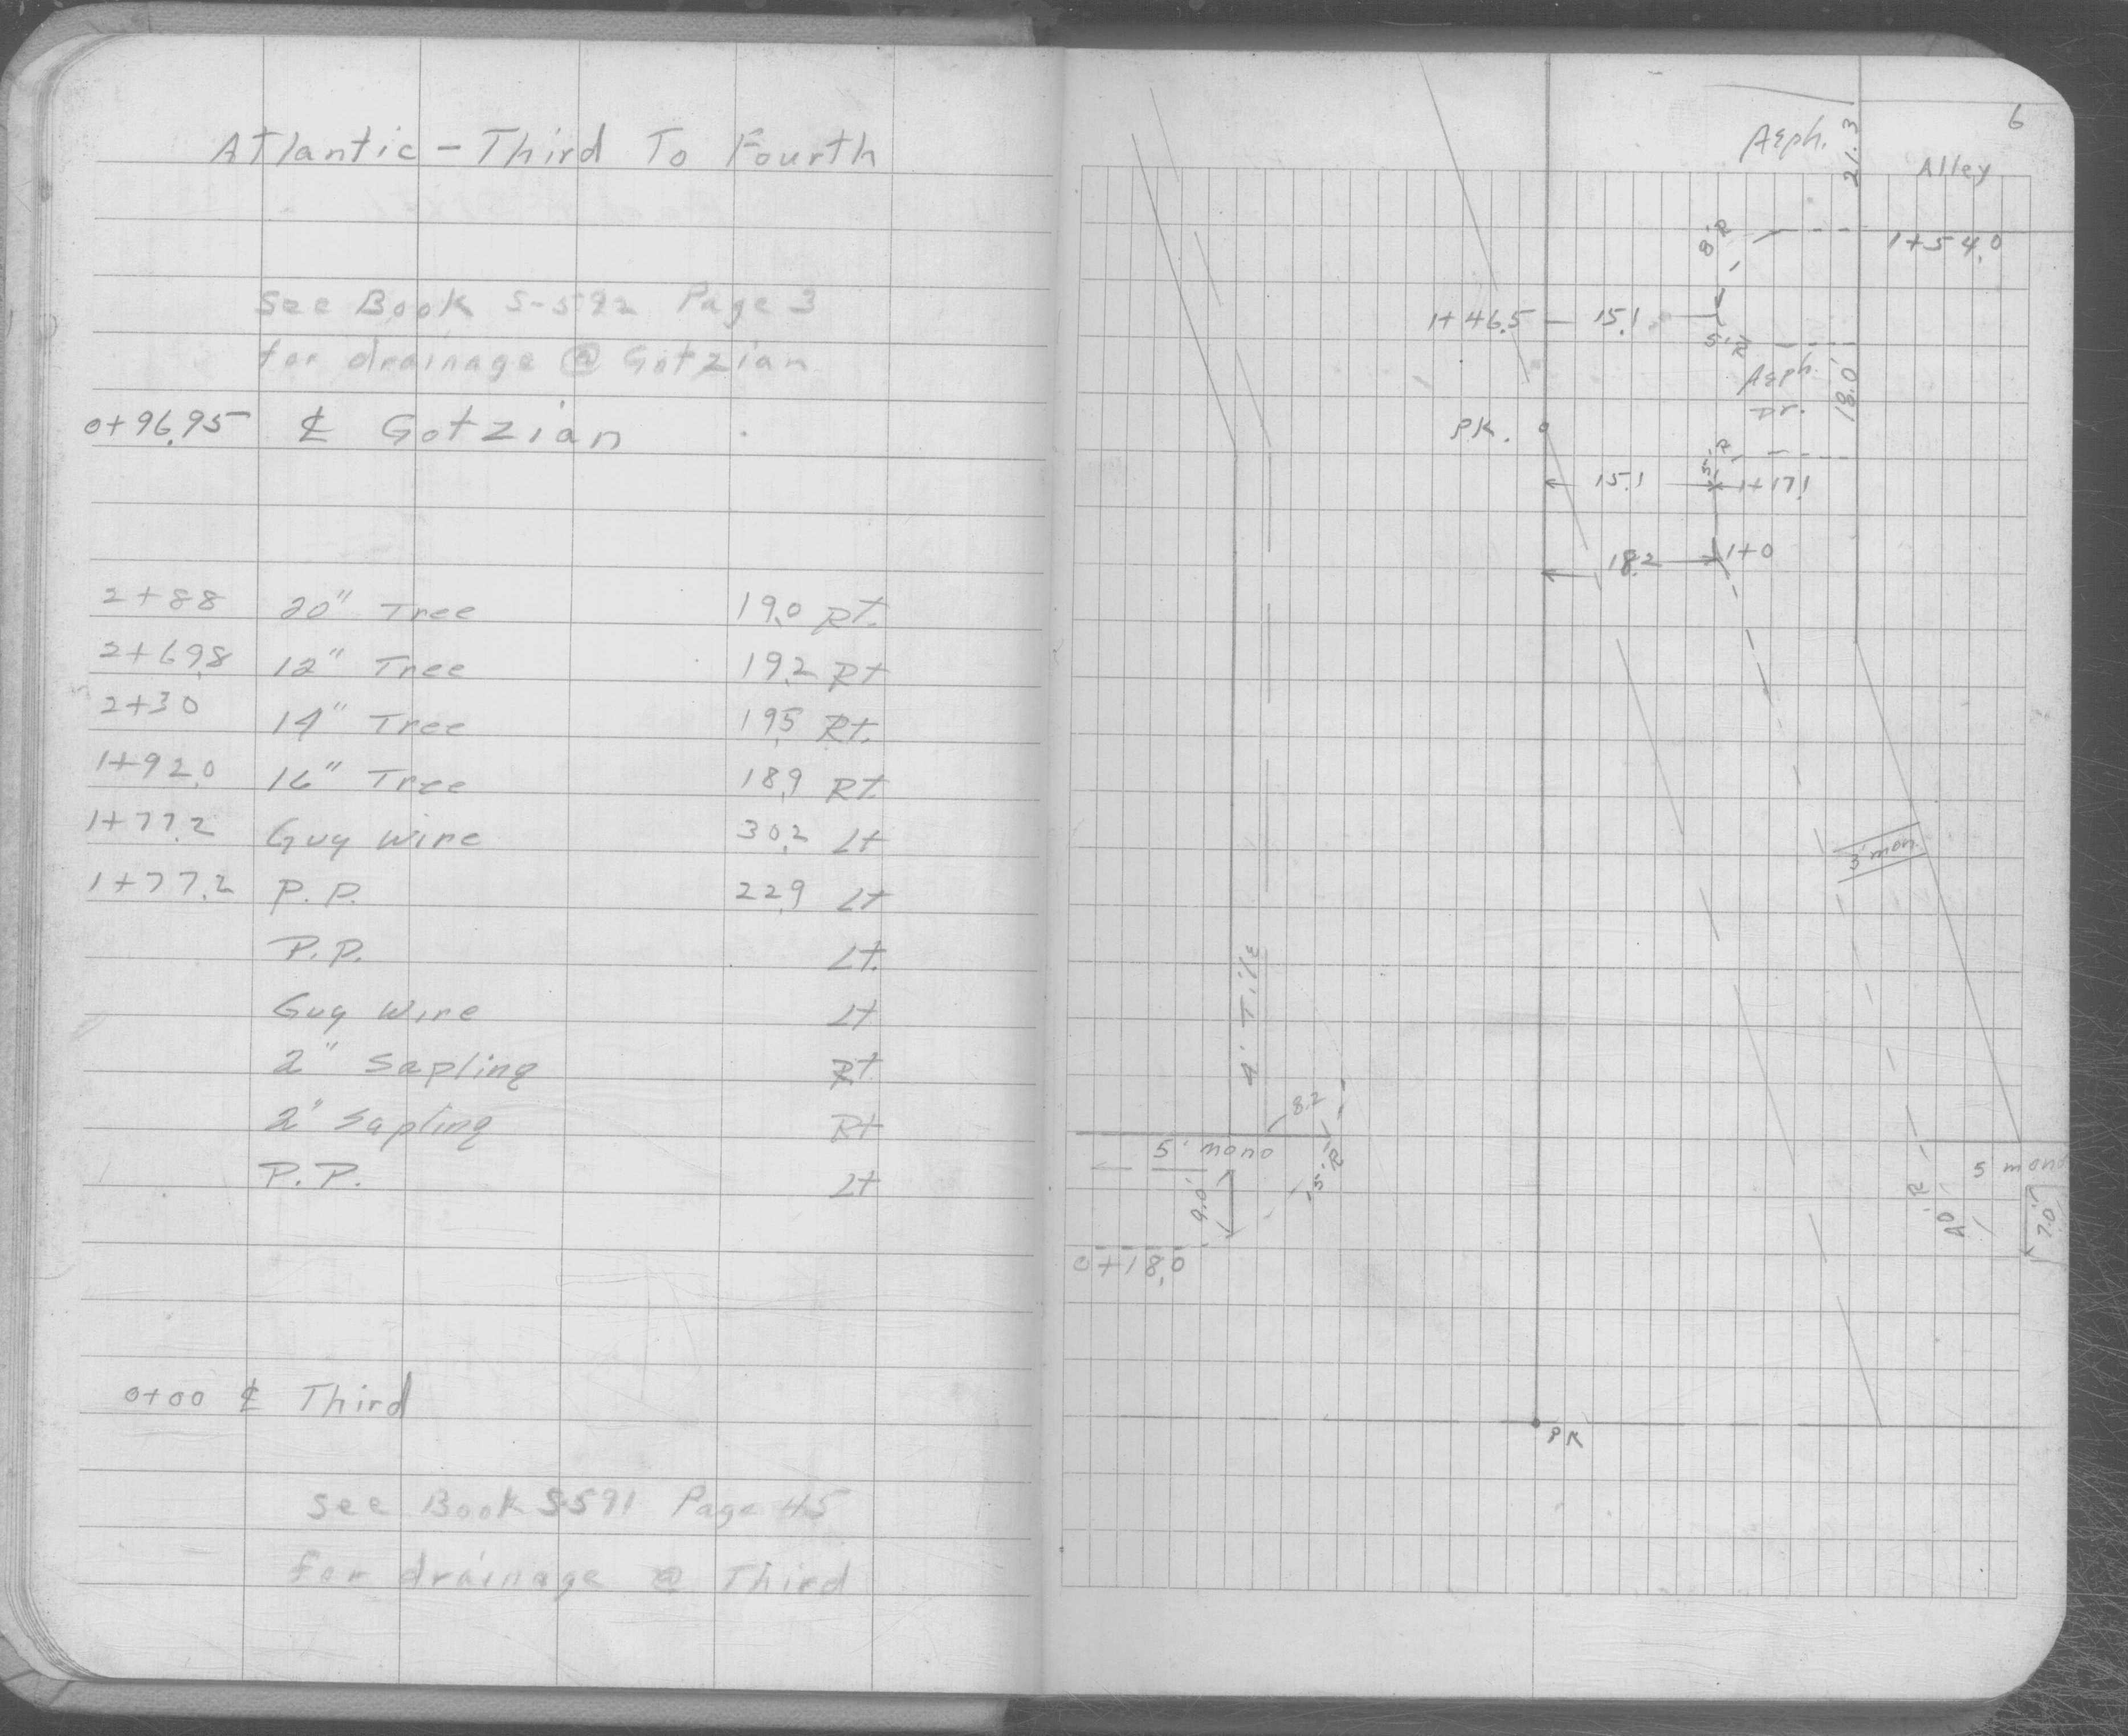 Atlantic - Third To Fourth
See Book S-592 Page 3
for drainage @ Gotzian
0+96.95 ℄ Gotzian
2+88 20" Tree 19.0 Rt.
2+69.8 12" Tree 19.2 Rt
2+30 14" Tree 19.5 Rt.
1+92.0 16" Tree 18.9 Rt.
1+77.2 Guy Wire 30.2 Lt
1+77.2 P.P. 22.9 Lt
P.P. Lt.
Guy Wire Lt
2" Sapling Rt.
2" Sapling Rt
P.P. Lt
0+00 ℄ Third
See Book S-591 Page 45
for drainage @ Third
6
Asph.
21.3
Alley
8'R
1+54.0
1+46.5 15.1
5'R
Asph.
Dr.
18.0'
PK.
5'R
15.1 1+17.1
18.2 1+0
3' mon.
4' Tile
8.2
5' mono
15'R
9.0'
0+18.0
5' mono
R
7.0'
PK